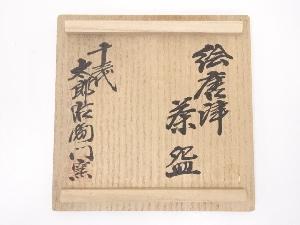 絵唐津
茶盌
十二代
太郎右衛門窯